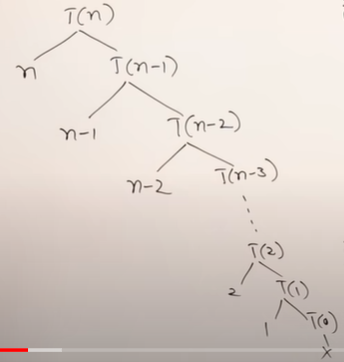 T(n)
n T(n-1)
n-1 T(n-2)
n-2 T(n-3)
T(2)
2 T(1)
1 T(0)
X